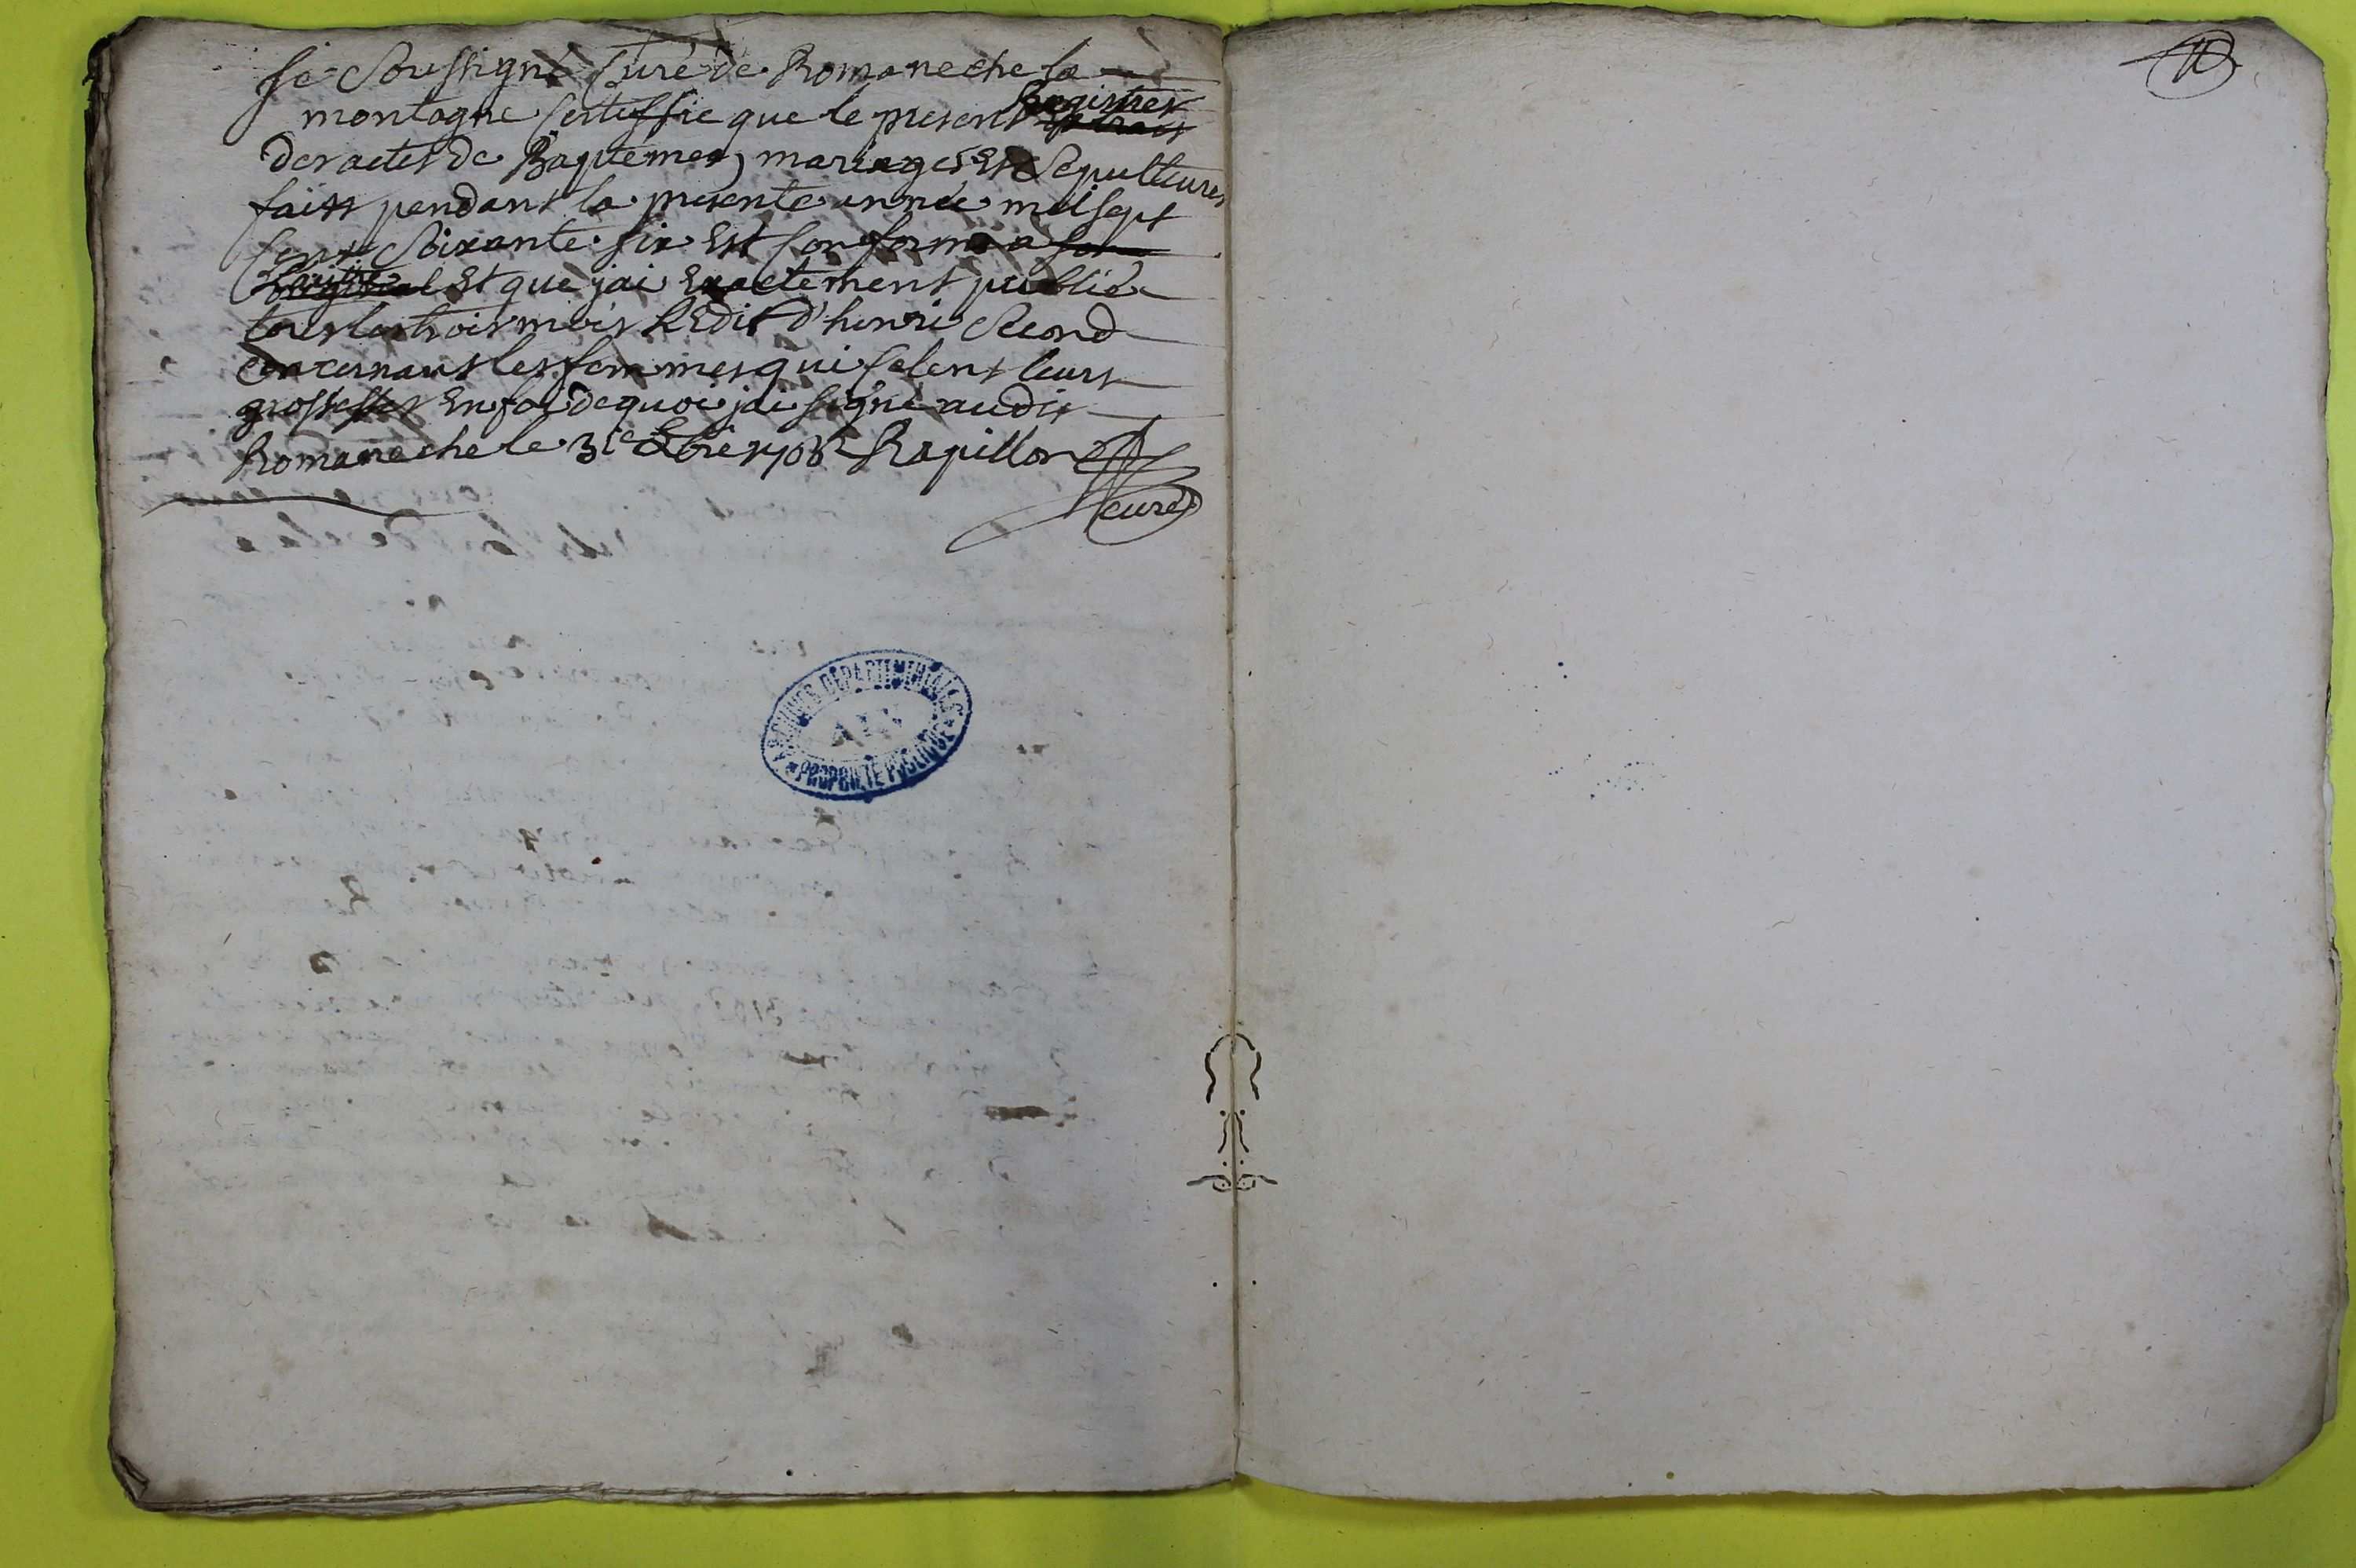 Je Soussigné Curé de Romaneche la
montagne Certiffie que le present Registres
des actes de Baptemes, mariages Et Sepultures
faits pendant la presente année mil sept
Cent Soixante six Est Conforme a son
Et que jai Exactement publié
tous les trois mois L'Edit d'henri Second
concernant les femmes qui Celent leurs
grossesses En foi de quoi jai signé audit
Romaneche le 31e Xbre 1766 Rapillon
curé
ARCHIVES DEPARTEMENTALES
AIN
PROPRIETE PUBLIQUE